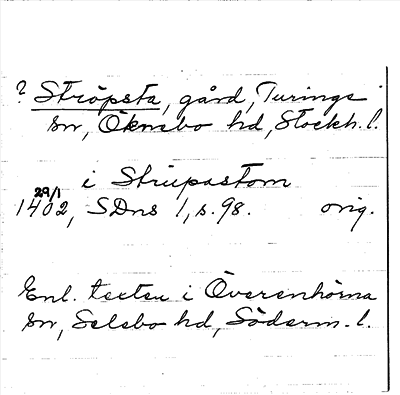 ? Ströpsta, gård, Turinge
sn, Öknebo hd, Stockh. l.
i Striupastom
29/1
1402, SDns 1, s. 98. orig.
Enl. texten i Överenhörna
sn, Selebo hd, Söderm. l.